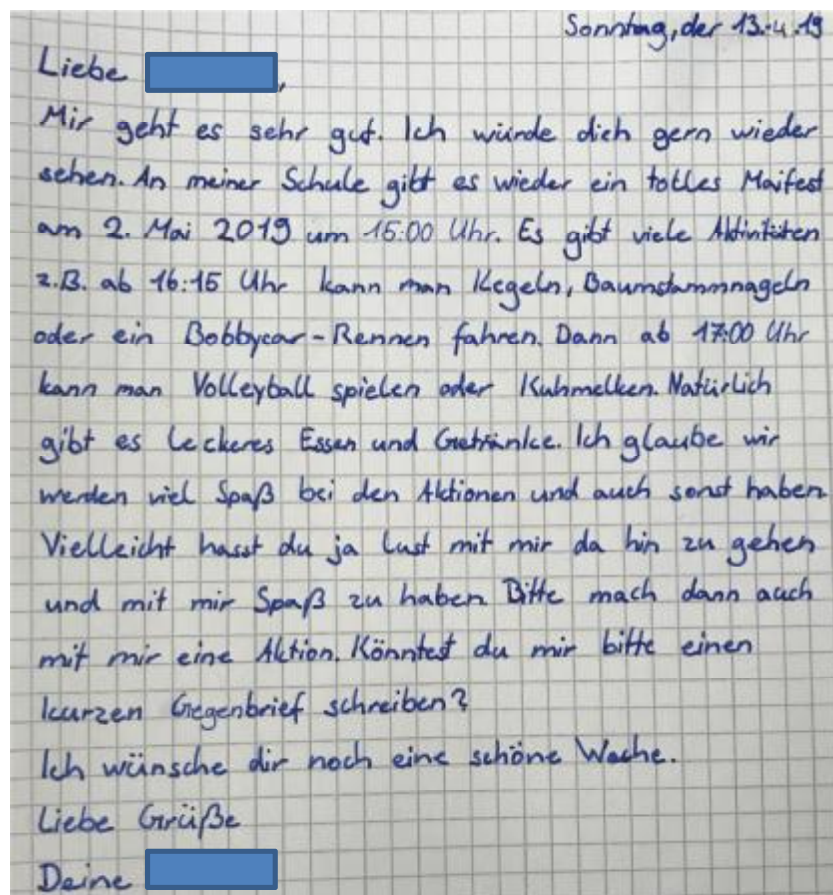 Sonntag, der 13.4.19
Liebe ,
Mir geht es sehr gut. Ich würde dich gern wieder
sehen. An meiner Schule gibt es wieder ein tolles Maifest
am 2. Mai 2019 um 15:00 Uhr. Es gibt viele Aktivitäten
z.B. ab 16:15 Uhr kann man Kegeln, Baumstammnageln
oder ein Bobbycar-Rennen fahren. Dann ab 17:00 Uhr
kann man Volleyball spielen oder Kuhmelken. Natürlich
gibt es leckeres Essen und Getränke. Ich glaube wir
werden viel Spaß bei den Aktionen und auch sonst haben.
Vielleicht hasst du ja lust mit mir da hin zu gehen
und mit mir Spaß zu haben. Bitte mach dann auch
mit mir eine Aktion. Könntest du mir bitte einen
kurzen Gegenbrief schreiben?
Ich wünsche dir noch eine schöne Woche.
Liebe Grüße
Deine